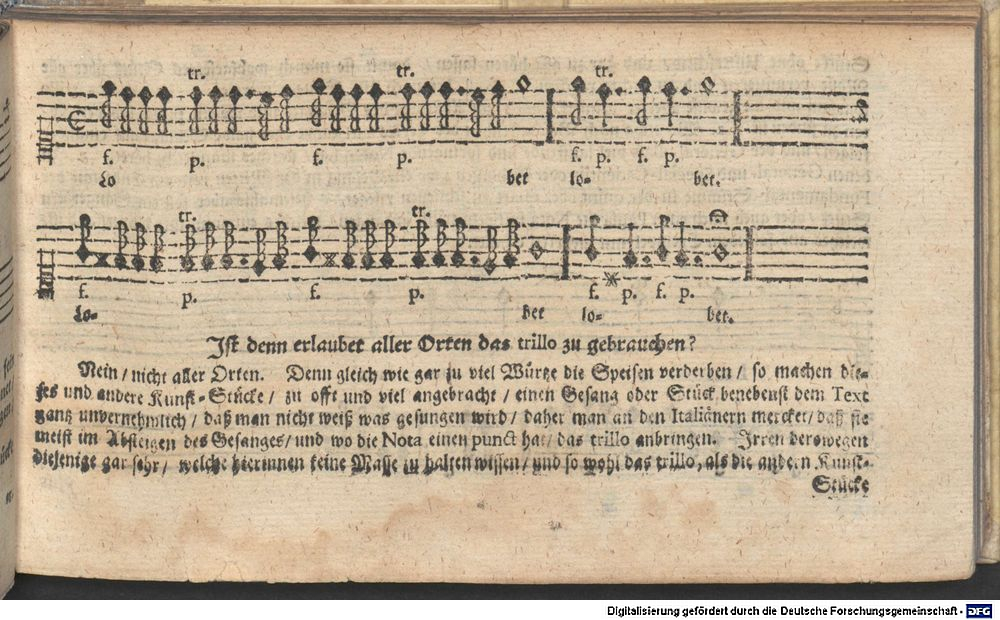 tr. tr. tr.
f. p. f. p. f. p. f. p.
Lo bet lo- bet.
tr. tr.
f. p. f. p. f. p. f. p.
Lo- bet lo- bet.
Ist denn erlaubet aller Orten das trillo zu gebrauchen?
Nein / nicht aller Orten. Denn gleich wie gar zu viel Würtze die Speisen verderben / so machen die-
ses und andere Kunst-Stücke / zu offt und viel angebracht / einen Gesang oder Stück benebenst dem Text
gantz unvernehmlich / daß man nicht weiß was gesungen wird / daher man an den Italiänern mercket / daß sie
meist im Absteigen des Gesanges / und wo die Nota einen punct hat / das trillo anbringen. Irren derowegen
diejenige gar sehr / welche hierinnen keine Masse zu halten wissen / und so wohl das trillo, als die andern Kunst-
Stücke
Digitalisierung gefördert durch die Deutsche Forschungsgemeinschaft - DFG